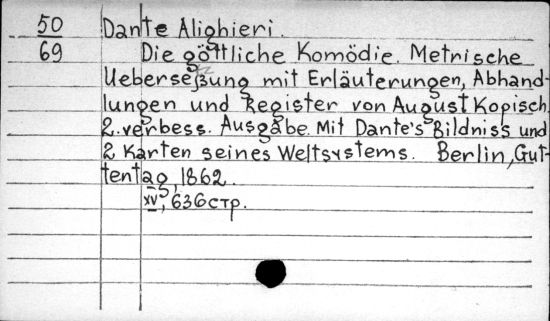 50
69
Dante Alighieri.
Die göttliche Komödie. Metrische
Ueberseßung mit Erläuterungen, Abhand-
lungen und Register von August Kopisch.
2. verbess. Ausgabe. Mit Dante's Bildniss und
2 Karten seines Weltsystems. Berlin, Gut-
tentag, 1862.
XV, 636 стр.